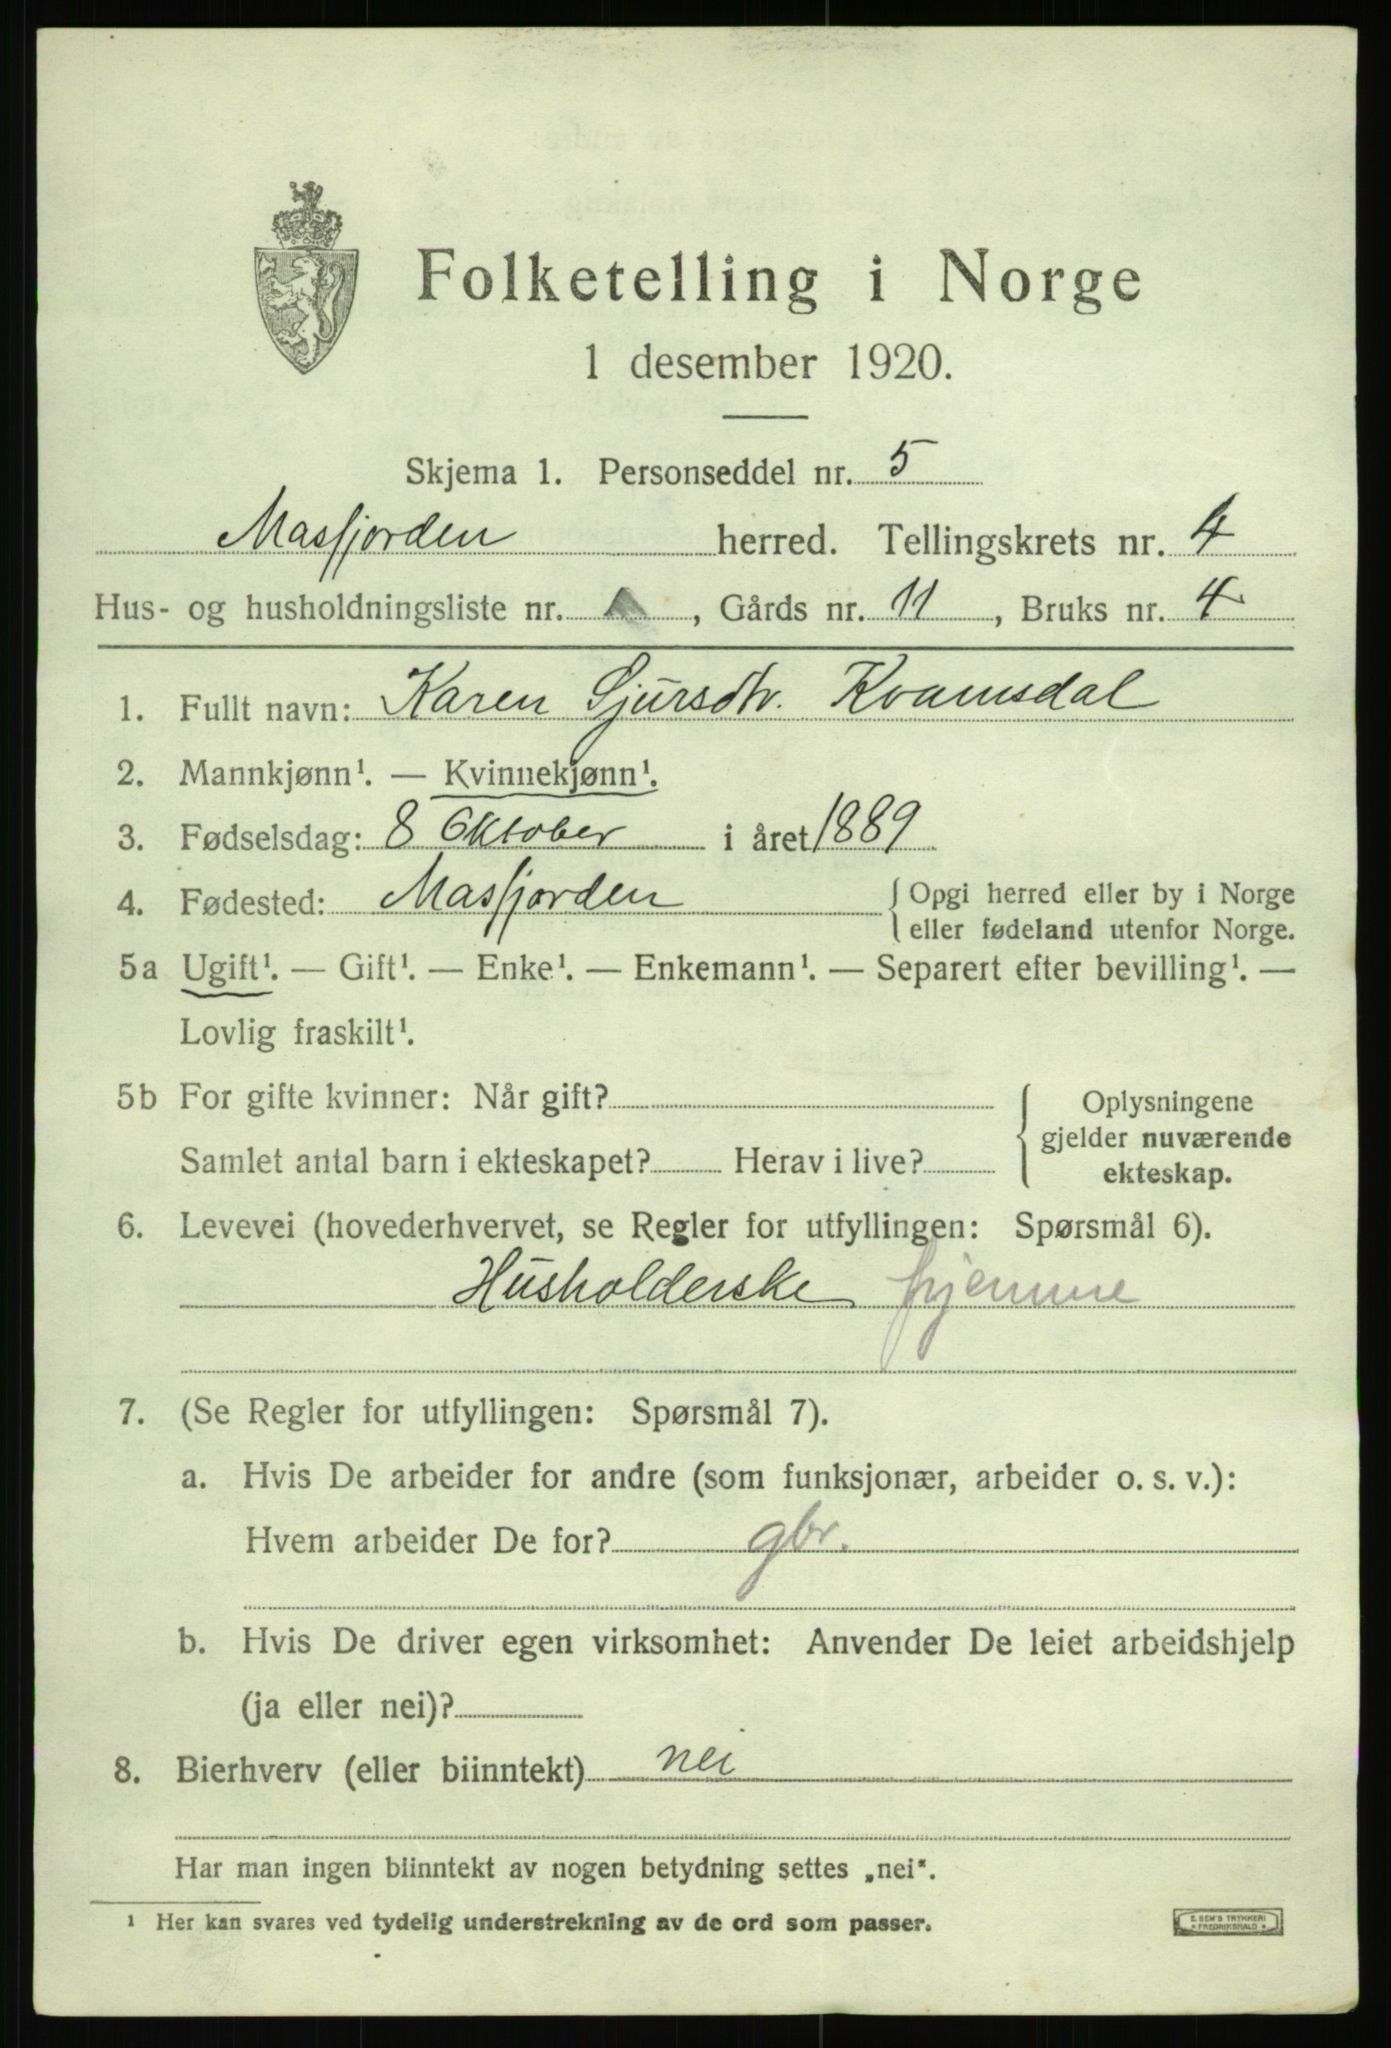 Folketelling i Norge
1 desember 1920.
Skjema 1. Personseddel nr. 5
Masfjorden herred. Tellingskrets nr. 4
Hus- og husholdningsliste nr. , Gårds nr. 11, Bruks nr. 4
1. Fullt navn: Karen Sjursdtr. Kvamsdal
2. Mannkjønn¹. — Kvinnekjønn¹.
3. Fødselsdag: 8 Oktober i året 1889
4. Fødested: Masfjorden { Opgi herred eller by i Norge
eller fødeland utenfor Norge.
5a Ugift¹. — Gift¹. — Enke¹. — Enkemann¹. — Separert efter bevilling¹. —
Lovlig fraskilt¹.
5b For gifte kvinner: Når gift? { Oplysningene
gjelder nuværende
Samlet antal barn i ekteskapet? Herav i live?
ekteskap.
6. Levevei (hovederhvervet, se Regler for utfyllingen: Spørsmål 6).
Husholderske hjemme
7. (Se Regler for utfyllingen: Spørsmål 7).
a. Hvis De arbeider for andre (som funksjonær, arbeider o. s. v.):
Hvem arbeider De for? gbr.
b. Hvis De driver egen virksomhet: Anvender De leiet arbeidshjelp
(ja eller nei)?
8. Bierhverv (eller biinntekt) nei
Har man ingen biinntekt av nogen betydning settes „nei".
¹ Her kan svares ved tydelig understrekning av de ord som passer.
E. SEM'S TRYKKERI
FREDRIKSHALD